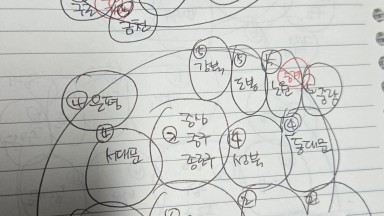 금천
⑤
강북
⑤
도봉
노원
중랑
④ 은평
④
서대문
②
중상
중구
종로구
④
성북
④
동대문
②
②